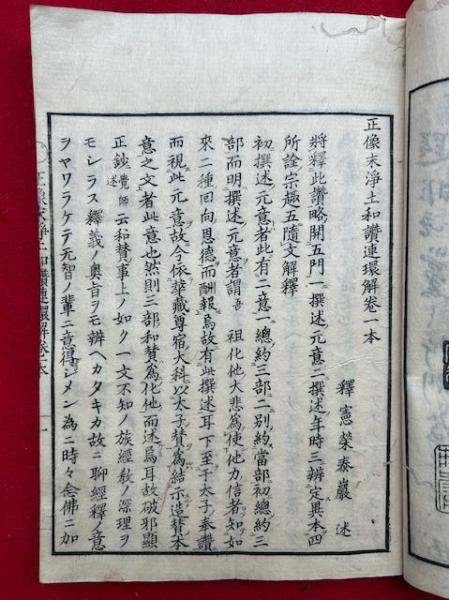 正像末淨土和讃連環解卷一本
釋憲榮泰巖述
將釋此讃略開五門一撰述元意二撰述年時三辨定異本四
所詮宗趣五隨文解釋
初撰述元意者此有二意一總約三部二別約當部初總約三
部而明撰述元意者謂吾祖化他大悲爲使他力信者知如
來二種回向恩德而酬報焉故有此撰述耳下至于太子奉讃
而視此元意故今依華藏尊宿大科以太子贊爲結示造贊本
意之文者此意也然則三部和贊爲化他而述焉耳故破邪顯
正鈔覺師述云和贊事上ノ如ク一文不知ノ族經敎ノ深理ヲ
モシラス釋義ノ奧旨ヲモ辨ヘカタキカ故ニ聊經釋ノ意
ヲヤワラケテ元智ノ輩ニ意得シメン爲ニ時々念佛ニ加
正像末淨土和讃連環解卷一本
一